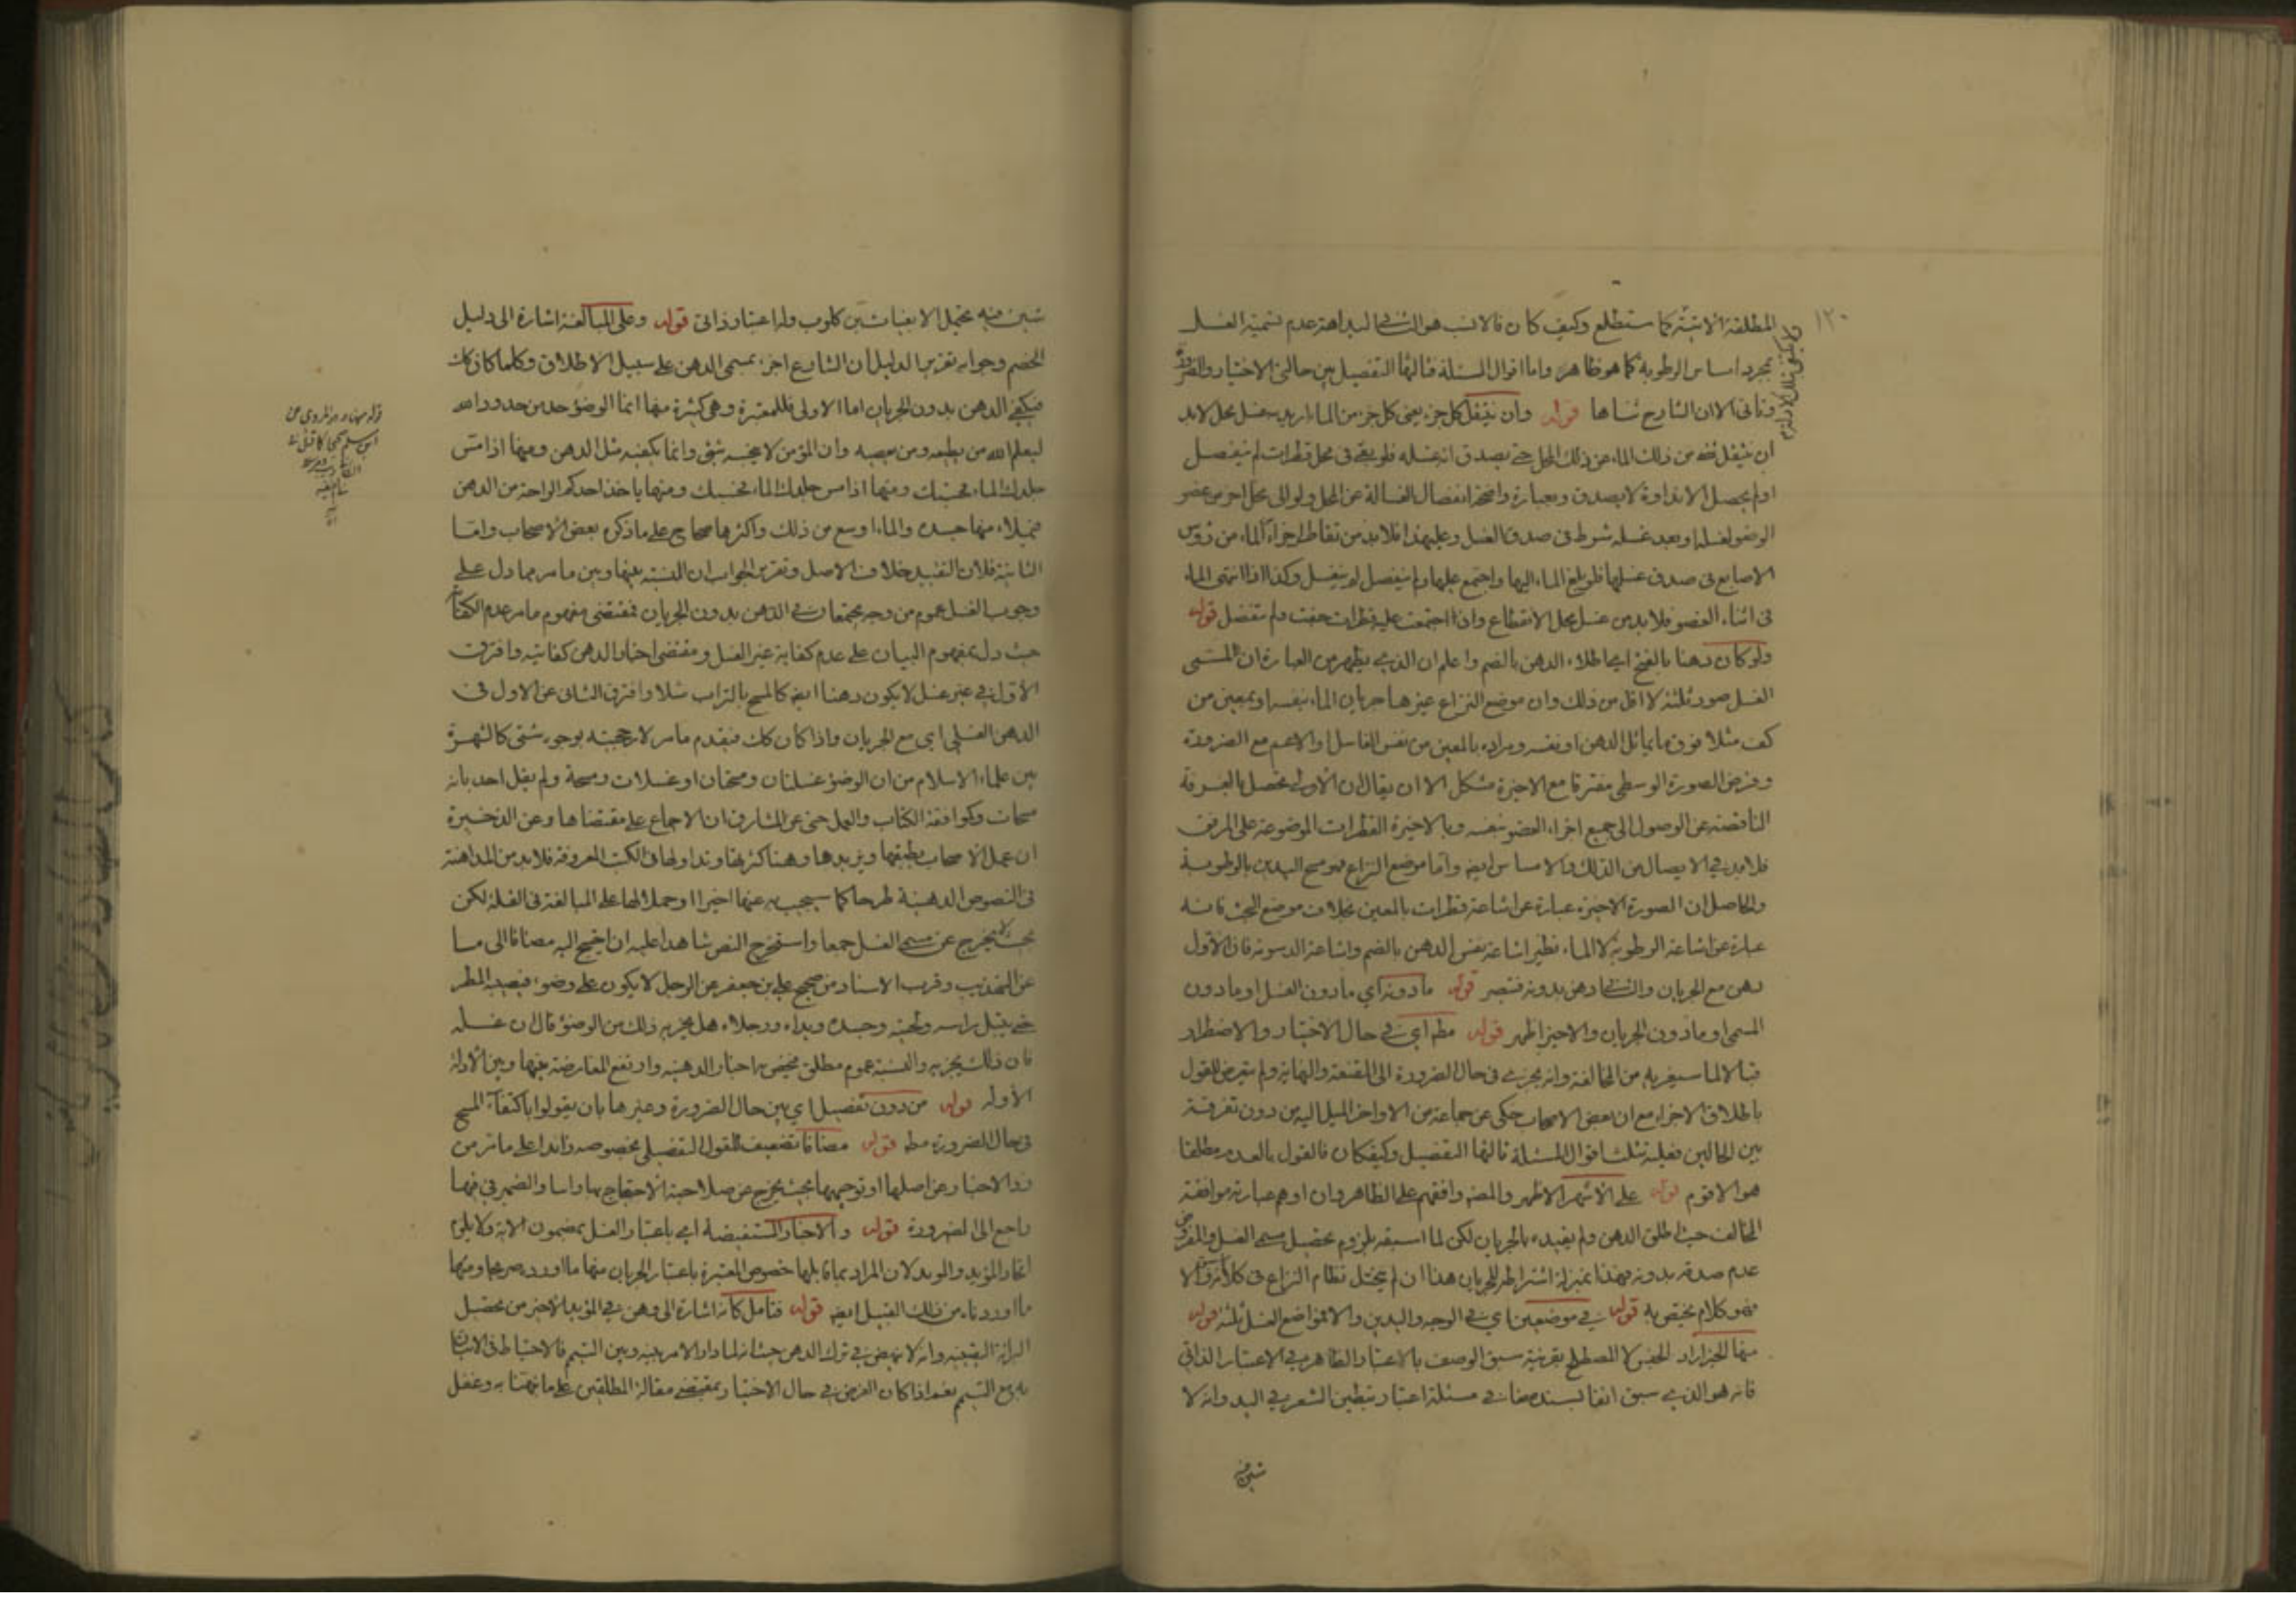 ١٢٠
المطلقة الاتية كما ستطلع وكيف كان فالانسب هو الثانى لبداهة عدم تسمية الغسل
بمجرد امساس الرطوبة كما هو ظاهر واما اقوال المسئلة فثالثها التفصيل بين حالتى الاختيار والضرورة
الشارح قوله وان ينتقل كل جزء يعنى كل جزء من الماء اريد به غسل محل لابد
ان ينتقل من ذلك الماء عن ذلك المحل حتى يصدق انه غسله فلو بقى فى محل قطرات لم ينفصل
او لم يحصل الا نداوة لا يصدق وبعبارة واضحة انفصال الغسالة عن المحل ولو الى محل اخر من عضو
الوضوء لغسله او بعد غسله شرط فى صدق الغسل وعليهذا فلابد من تقاطر اجزاء الماء من رؤس
الاصابع فى صدق غسلها فلو بلغ الماء اليها واجتمع عليها ولم ينفصل لم يغسل وكذا اذا انتهى الماء
فى اثناء العضو فلابد من غسل محل الانقطاع وان اجتمعت عليه قطرات جفت ولم تنفصل قوله
ولو كان دهنا بالفتح اى اطلاء الدهن بالضم واعلم ان الذى يظهر من العبارة ان المسمى
الغسل صور ثلثة لا اقل من ذلك وان موضع النزاع غيرها جريان الماء بنفسه او بمعين من
كف مثلا فوق ما يماثل الدهن او نفسه ومراده بالمعين من نفس الغاسل او الاعم مع الضرورة
وفرض الصورة الوسطى مفترقا مع الاخيرة مشكل الا ان يقال ان الاولى تحصل بالغرفة
الناقصة عن الوصول الى جميع اجزاء العضو بنفسه وبالاخيرة القطرات الموضوعة على المرفق
فلابد فى الايصال من الدلك والامساس ايضا واما موضع النزاع فهو مسح اليدين بالرطوبة
والحاصل ان الصورة الاخيرة عبارة عن اشاعة قطرات بالمعين بخلاف موضع البحث فانه
عبارة عن اشاعة الرطوبة لا الماء نظير اشاعة نفس الدهن بالضم واشاعة الدسومة فان الاول
دهن مع الجريان والثانى دهن بدونه فتبصر قوله مادونه اى مادون الغسل او مادون
المسمى او مادون الجريان والاخير اظهر قوله مطم اى فى حال الاختيار والاضطرار
من المخالفة وانه يجزى فى حال الضرورة الى المقنعة والنهاية ولم يتعرض للقول
باطلاق الاجزاء مع ان بعض الاصحاب حكى عن جماعة من الاواخر الميل اليه من دون تفرقة
بين الحالين فعليه تثلث اقوال المسئلة ثالثها التفصيل وكيفكان فالقول بالعدم مطلقا
هو الاقوم قوله على الاشهر الاظهر والمضه وافقهم على الظاهر وان اوهم عبارته موافقة
المخالف حيث اطلق الدهن ولم يقيده بالجريان لكن لما اسبقه بلزوم تحصيل مسمى الغسل والمفروض
عدم صدقه بدونه فهذا بمنزلة اشتراطه للجريان هذا ان لم يختل نظام النزاع فى كلامه والا
فهو كلام يختص به قوله فى موضعين اى فى الوجه واليدين والا فمواضع الغسل ثلثة قوله
منها الخبر اراد الجنس لا المصطلح بقرينة سبق الوصف بالاعتبار الظاهر فى الاعتبار الذاتى
فانه هو الذى سبق انفا بسند مضا فى مسئلة اعتبار تبطين الشعر فى اليد وانه لا
شين فيه
شين فيه يحتمل وله اعتبار ذاتى قوله وعلى المبالغة اشارة الى دليل
الخصم وجوابه تقرير الدليل ان الشارع اجزء بمسمى الدهن على سبيل الاطلاق وكلما كان كك
فيكفى الدهن بدون الجريان اما الاولى فللمعتبرة وهى كثيرة منها انما الوضوء حد من حدود الله
ليعلم الله من يطيعه ومن يعصيه وان المؤمن لا ينجسه شئ وانما يكفيه مثل الدهن ومنها اذا مس
جلدك الماء فحسبك ومنها اذا مس جلدك الماء فحسبك ومنها ياخذ احدكم الراحة من الدهن
فيملاء منها جسده والماء اوسع من ذلك واكثرها صحاح على ما ذكره بعض الاصحاب واما
الثانية فلان التقييد خلاف الاصل وتقرير الجواب ان النسبة بينها وبين ما مر مما دل على
وجوب الغسل عموم من وجه يجتمعان فى الدهن بدون الجريان فمقتضى مفهوم ما مر عدم الكفاية
حيث دل بمفهوم البيان على عدم كفاية غير الغسل ومقتضى اخبار الدهن كفايته وافترق
الاول فى غير غسل لا يكون دهنا ايضا كالمسح بالتراب مثلا وافترق الثانى عن الاول فى
الدهن الغسلى اى مع الجريان واذا كان كك فيقدم ما مر لارجحيته بوجوه شتى كالشهرة
بين علماء الاسلام من ان الوضوء غسلتان ومسحتان او غسلات ومسحة ولم يقل احد بانه
مسحات وكموافقة الكتاب والعمل حتى عن المشارق ان الاجماع على مقتضاها وعن الذخيرة
ان عمل الاصحاب يطبقها ويزيدها وهنا كثرتها وتداولها فى الكتب المعروفة فلابد من المداهنة
فى النصوص الدهنية طرحا كما سيجيب به عنها اخيرا او حملا لها على المبالغة فى القلة لكن
بحيث لا يخرج عن مسمى الغسل جمعا واستخرج النص شاهدا عليه ان احتيج اليه مضافا الى ما
عن التهذيب وقرب الاسناد من صحيح على بن جعفر عن الرجل لا يكون على وضوء فيصيبه المطر
حتى يبتل راسه ولحيته وجسده ويداه ورجلاه هل يجزيه ذلك من الوضوء قال ان غسله
فان ذلك يجزيه والنسبة عموم مطلق فيخص به اخبار الدهنية وارتفع المعارضة بينها وبين الادلة
الاوله قوله من دون تفصيل اى بين حال الضرورة وغيرها بان يقولوا باكتفاء المسح
فى حال الضرورة مطم قوله مضافا تضعيف للقول التفصيلى بخصوصه زائدا على ما مر من
رد الاخبار عن اصلها او توجيهها بحيث يخرج عن صلاحية الاحتجاج بها راسا والضمير فى فيها
راجع الى الضرورة قوله والاخبار المستفيضة اى باعتبار الغسل بمضمون الاية ولا يلزم
اتحاد المؤيد والمويد لان المراد بما قابلها خصوص المعتبرة باعتبار الجريان منها ما اورد صريحا ومنها
ما اوردناه من ذلك القبيل ايضا قوله فتامل كانه اشارة الى وهن فى المؤيد الاخير من تحصيل
البراءة اليقينية وانه لا ينهض فى ترك الدهن حيث انه لما دار الامر بينه وبين التيمم فالاحتياط فى الاتيان
به مع التيمم نعم اذا كان الفرض فى حال الاختيار بمقتضى مقالة المطلقين على ما نبهنا به وغفل